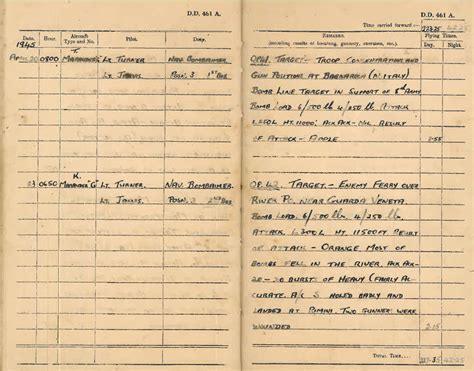 D.D. 461 A.
Date Hour Aircraft Type and No. Pilot. Duty.
1945 T.
April 20 0800 Marauder Lt. Turner Nav. Bombaimer
Lt. Posn. 3 1st Box
K.
23 0650 Marauder "G" Lt. Turner. Nav. Bombaimer.
Lt. Posn. 3. 2nd Box
D.D. 461 A.
Time carried forward:—
Remarks. Flying Times.
(recording results of bombing, gunnery, exercises, etc.) Day. Night.
Op.41. Target:- Troop Concentrations and
Gun Positions at (N. Italy)
Bomb Line Target in Support of 8th Army
Bomb Load 6/500 lb 4/250 lb Attack
Ht. 11000'. Ack Ack - Nil. Result
of Attack - 2.55
Op. 42. Target.- Enemy Ferry over
River Po. near Guarda Veneta.
Bomb Load. 6/500 lb. 4/250 lb.
Attack. L300L Ht. 11500ft Result
of Attack - Orange. Most of
Bombs fell in the river. Ack Ack-
20-30 bursts of Heavy (Fairly Ac-
curate. A/c S holed badly and
landed at Rimini. Two gunners were
wounded 2.15
Total Time....